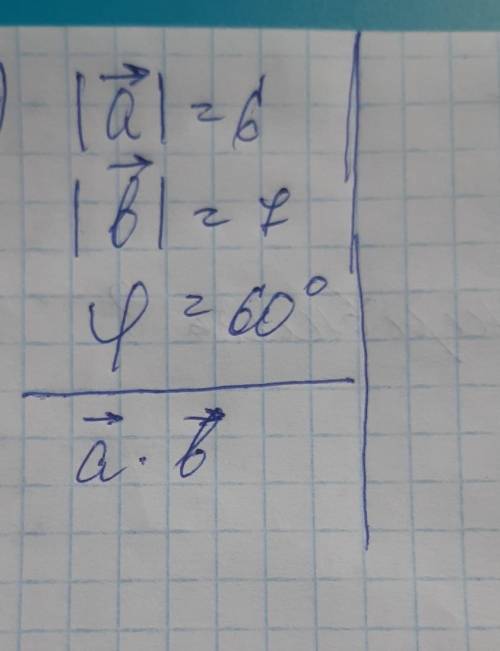 |a⃗| = 6
|b⃗| = 7
φ = 60°
a⃗ · b⃗